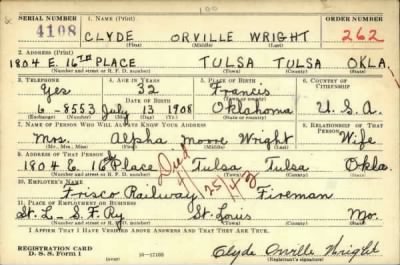 100
SERIAL NUMBER 1. NAME (Print) ORDER NUMBER
4108 CLYDE ORVILLE WRIGHT 262
(First) (Middle) (Last)
2. ADDRESS (Print)
1804 E. 16TH PLACE TULSA TULSA OKLA.
(Number and street or R. F. D. number) (Town) (County) (State)
3. TELEPHONE 4. AGE IN YEARS 5. PLACE OF BIRTH 6. COUNTRY OF CITIZENSHIP
Yes 32 Francis
DATE OF BIRTH (Town or county)
6-8553 July 13 1908 Oklahoma U.S.A.
(Exchange) (Number) (Mo.) (Day) (Yr.) (State or country)
7. NAME OF PERSON WHO WILL ALWAYS KNOW YOUR ADDRESS 8. RELATIONSHIP OF THAT PERSON
Mrs. Alpha Moore Wright Wife
(Mr., Mrs., Miss) (First) (Middle) (Last)
9. ADDRESS OF THAT PERSON
1804 E. 16 Place Tulsa Tulsa Okla.
(Number and street or R. F. D. number) (Town) (County) (State)
10. EMPLOYER'S NAME
Frisco Railway Fireman
11. PLACE OF EMPLOYMENT OR BUSINESS
St. L. - S. F. Ry St. Louis Mo.
(Number and street or R. F. D. number) (Town) (County) (State)
I AFFIRM THAT I HAVE VERIFIED ABOVE ANSWERS AND THAT THEY ARE TRUE.
REGISTRATION CARD
D. S. S. Form 1 16-17105 Clyde Orville Wright
(Registrant's signature)